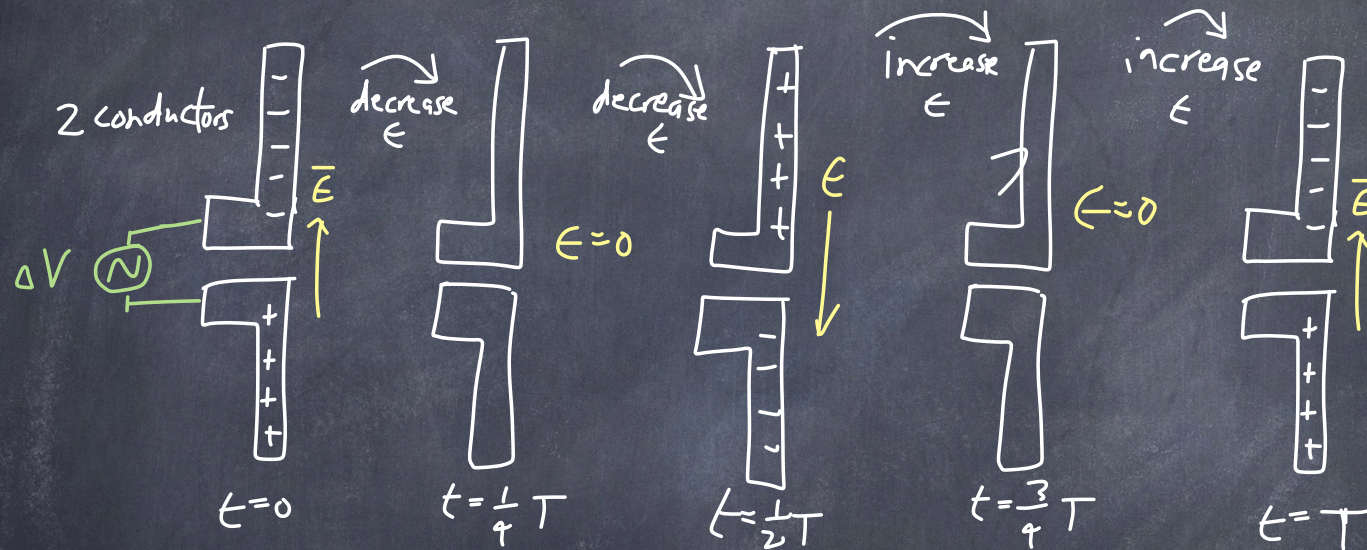 2 conductors
ΔV
E
- - - - -
+ + + +
t=0
decrease
ϵ
E=0
t=1/4 T
decrease
ϵ
+ + + +
E
- - - -
t=1/2 T
increase
ϵ
E=0
t=3/4 T
increase
ϵ
- - - - -
E
+ + + +
t=T